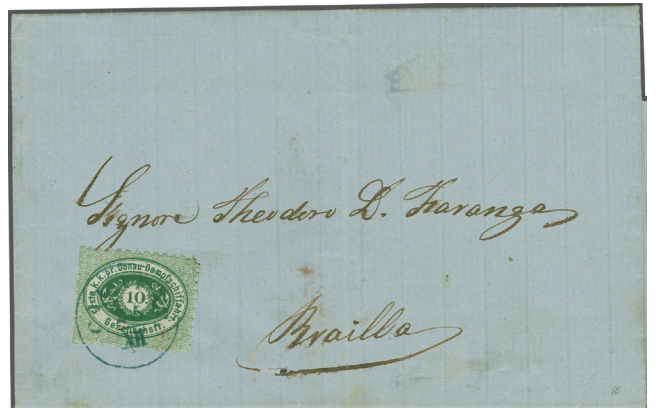 Signore Theodoro D. Xaranga
Erste K.K.pr. Donau-Dampfschiffahrt
10
Gesellschaft.
XII
Brailla